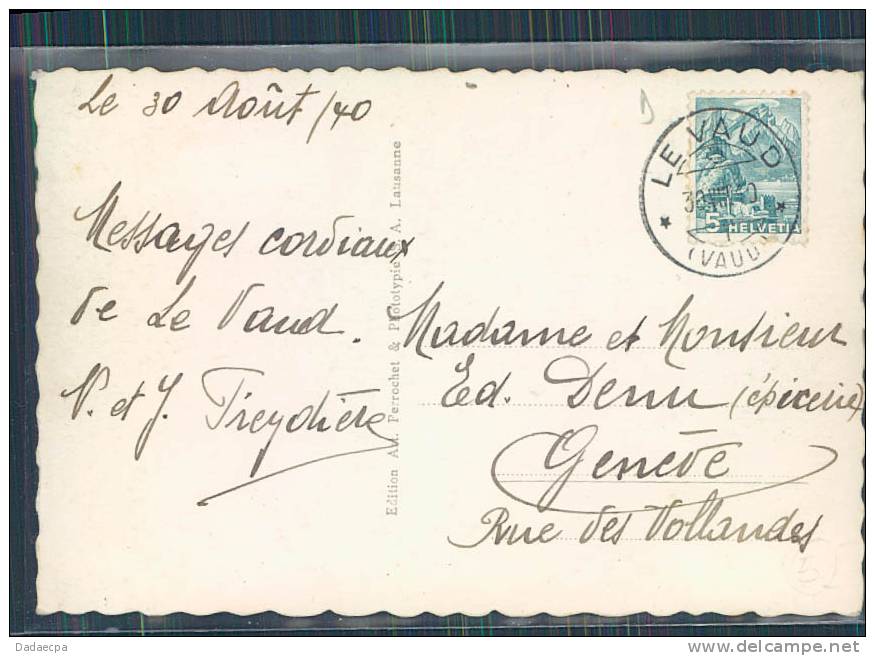 Le 30 Août /40
Messages cordiaux
de Le Vaud.
V. et J. Treydière
Edition Perrochet & Phototypie A. Lausanne
LE VAUD
(VAUD)
5 HELVETIA
Madame et Monsieur
Ed. Demu (épicerie)
Genève
Rue des Vollandes
Dadaecpa
www.delcampe.net